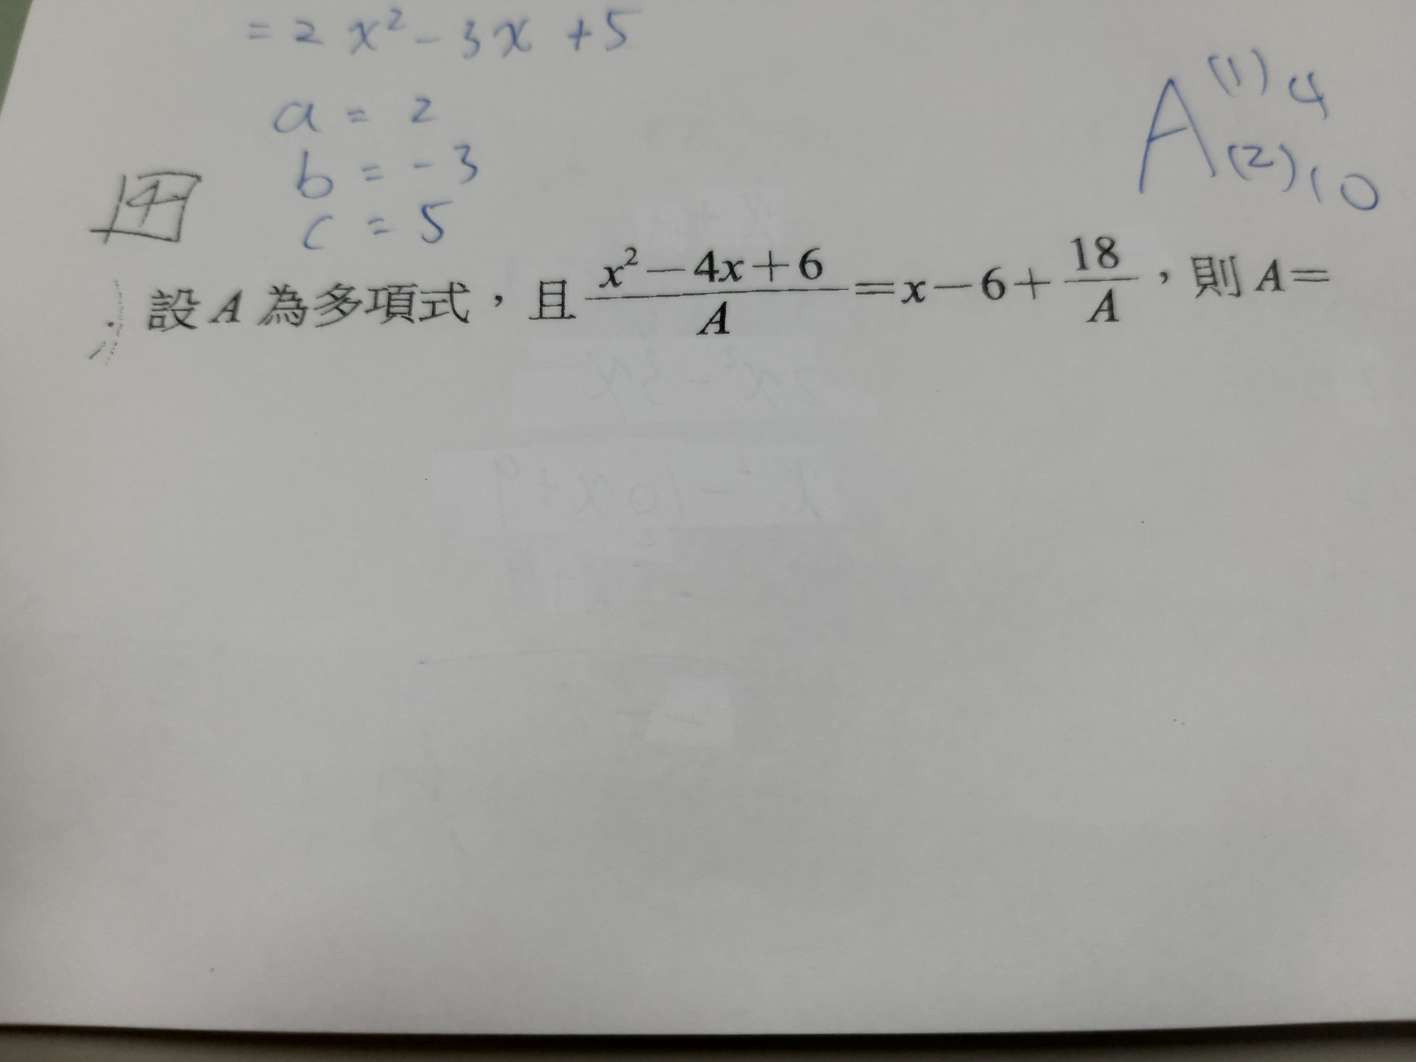 = 2x² - 3x + 5
a = 2
b = -3
c = 5
A (1) 4
(2) 10
4
設 A 為多項式，且 \frac{x²-4x+6}{A}=x-6+\frac{18}{A}，則 A=